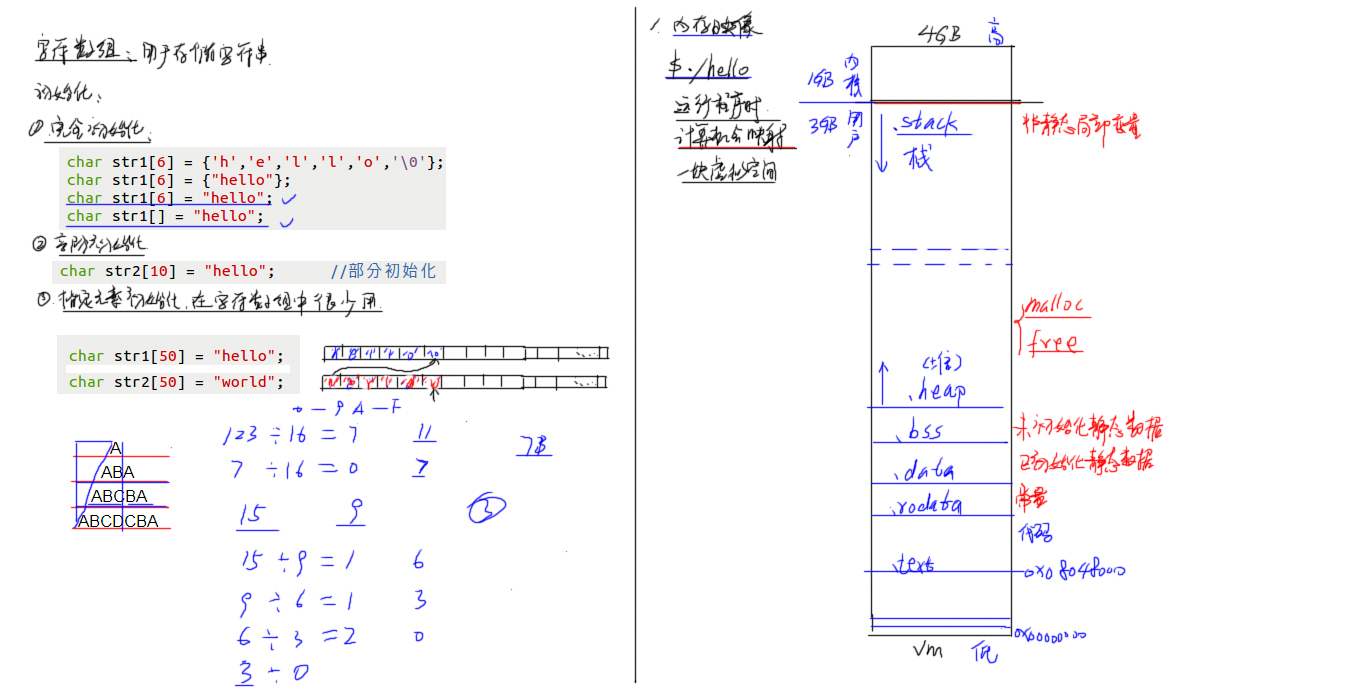 字符数组:用于存储字符串.
初始化:
① 完全初始化.
char str1[6] = {'h','e','l','l','o','\0'};
char str1[6] = {"hello"};
char str1[6] = "hello";
char str1[] = "hello";
② 部分初始化.
char str2[10] = "hello"; //部分初始化
③.指定元素初始化,在字符数组中很少用.
char str1[50] = "hello";
char str2[50] = "world";
0 — 9 A — F
123 ÷ 16 = 7 11
7B
7 ÷ 16 = 0 7
15 9
③
15 ÷ 9 = 1 6
9 ÷ 6 = 1 3
6 ÷ 3 = 2 0
3 ÷ 0
A
ABA
ABCBA
ABCDCBA
1. 内存映像
$ ./hello
运行程序时
计算机会映射
一块虚拟空间
4GB 高
1GB 内核
3GB 用户
.stack
栈
非静态局部变量
malloc
free
(堆)
.heap
.bss 未初始化静态数据
.data 已初始化静态数据
.rodata 常量
代码
.text 0x08048000
0x00000000
vm 低